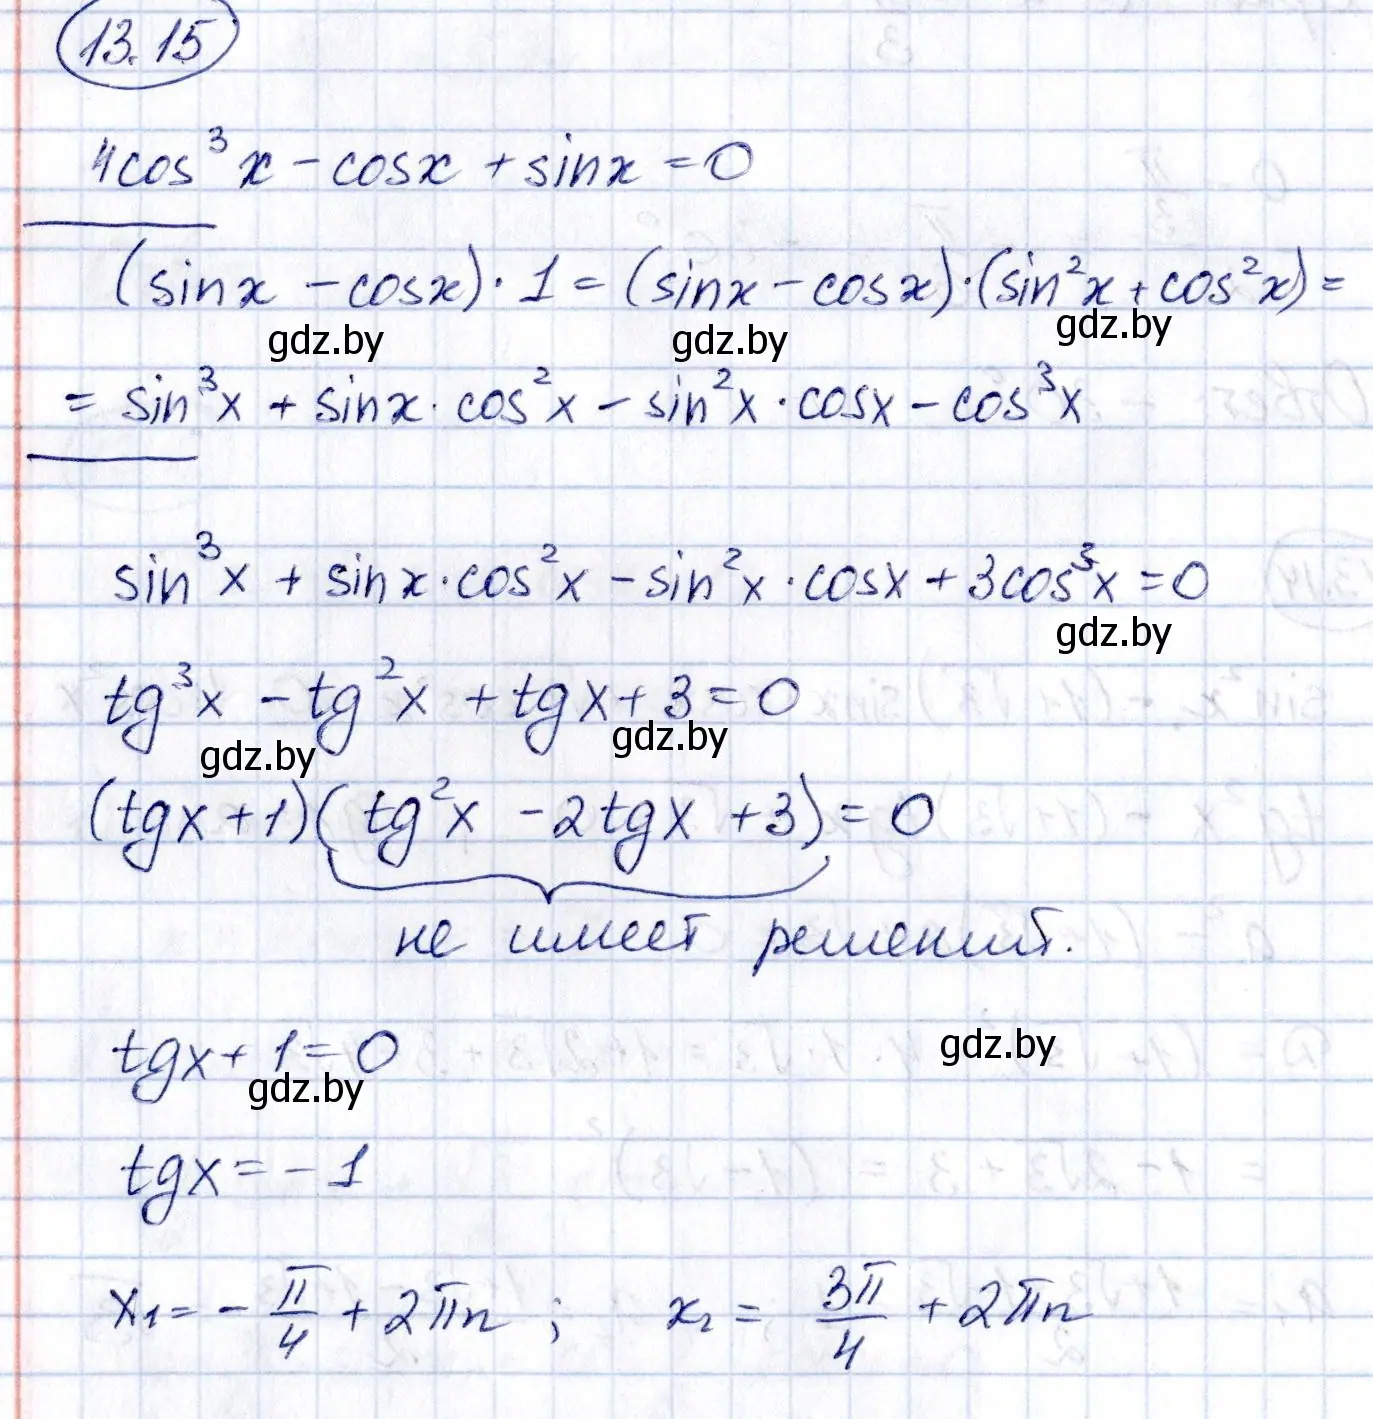 13.15
4cos³x - cosx + sinx = 0
(sinx - cosx) · 1 = (sinx - cosx) · (sin²x + cos²x) =
gdz.by gdz.by gdz.by
= sin³x + sinx · cos²x - sin²x · cosx - cos³x
sin³x + sinx · cos²x - sin²x · cosx + 3cos³x = 0
gdz.by
tg³x - tg²x + tgx + 3 = 0
gdz.by gdz.by
(tgx + 1)(tg²x - 2tgx + 3) = 0
не имеет решений.
tgx + 1 = 0
gdz.by gdz.by
tgx = - 1
x₁ = - π/4 + 2πn ; x₂ = 3π/4 + 2πn